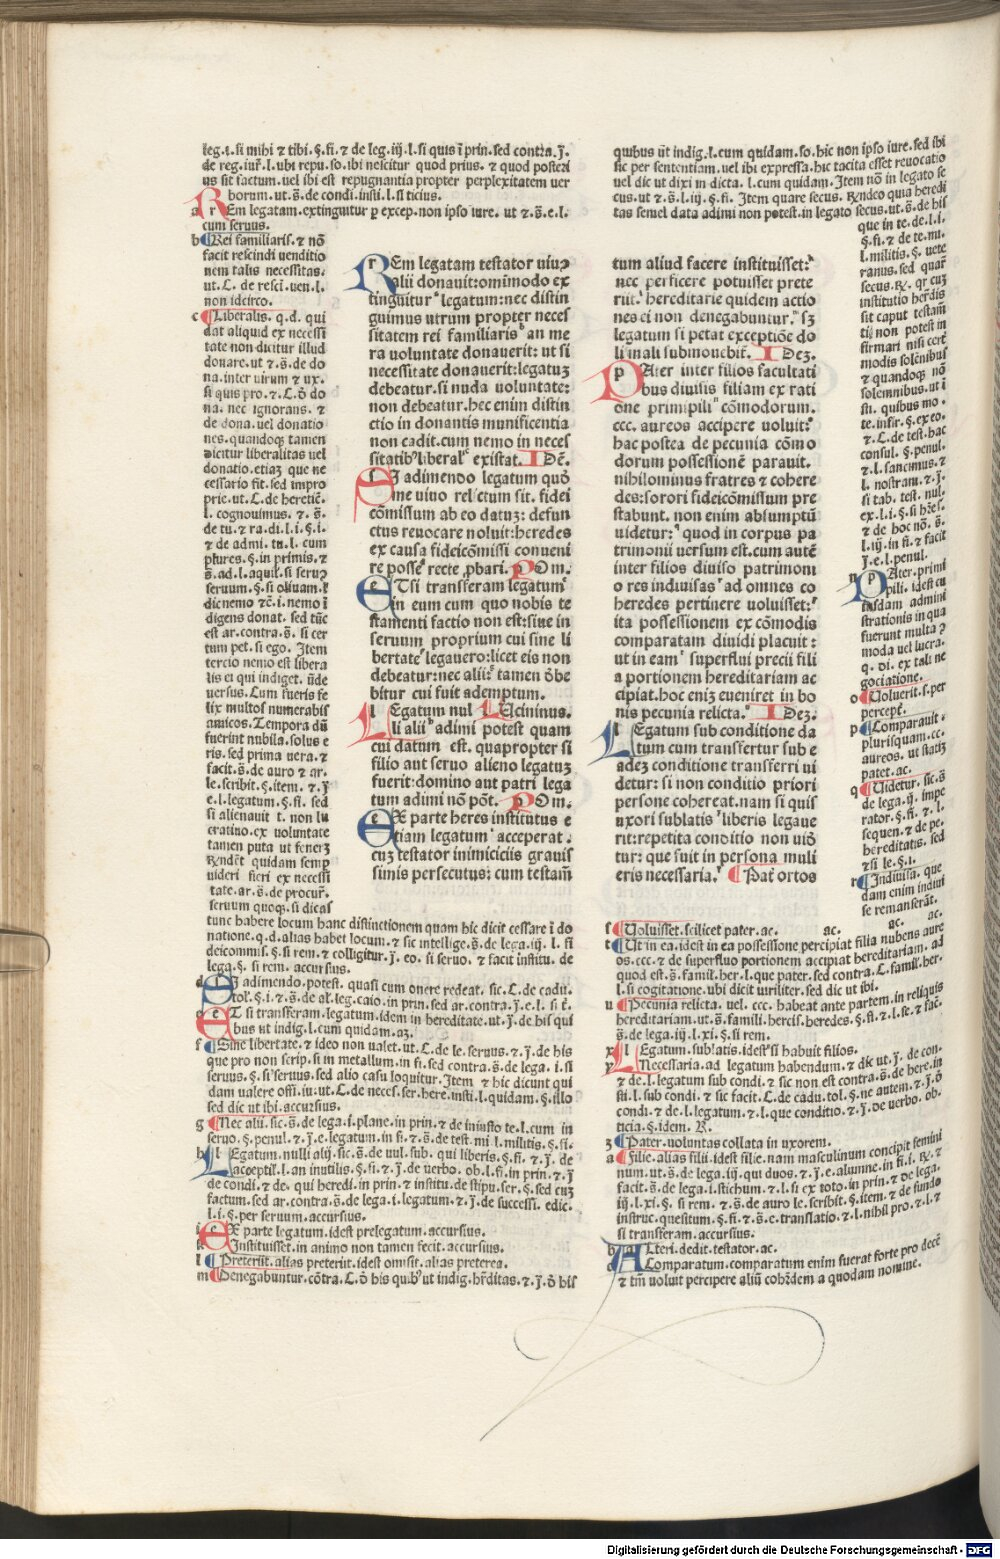 leg. i. si mihi ⁊ tibi. §. fi. ⁊ de leg. iij. l. si quis ī prin. sed contra. j̄.
de reg. iur̄. l. ubi repu. so. ibi nescitur quod prius. ⁊ quod posteri
us sit factum. uel ibi est repugnantia propter perplexitatem uer
borum. ut. s̄. de condi. insti. l. si ticius.
a rEm legatam. extinguitur p excep. non ipso iure. ut ⁊. s̄. e. l.
cum seruus.
b Rei familiaris. ⁊ nō
facit rescindi uenditio
nem talis necessitas.
ut. C. de resci. uen. l.
non idcirco.
c Liberalis. q. d. qui
dat aliquid ex necessi
tate non dicitur illud
donare. ut ⁊. s̄. de do
na. inter uirum ⁊ ux.
si quis pro. ⁊. C. ō do
na. nec ignorans. ⁊
de dona. uel donatio
nes. quandoqꝫ tamen
dicitur liberalitas uel
donatio. etiaꝫ que ne
cessario fit. sed impro
prie. ut. C. de heretic̄.
l. cognouimus. ⁊. s̄.
de tu. ⁊ ra. di. l. i. §. i.
⁊ de admi. tu. l. cum
plures. §. in primis. ⁊
s̄. ad. l. aquil̄. si seruꝰ
seruum. §. si oliuam. ł
dic nemo ⁊c̄. i. nemo ī
digens donat. sed tūc
est ar. contra. s̄. si cer
tum pet. si ego. Item
tercio nemo est libera
lis ei qui indiget. ūde
uersus. Cum fueris fe
lix multos numerabis
amicos. Tempora dū
fuerint nubila. solus e
ris. sed prima uera. ⁊
facit. s̄. de auro ⁊ ar.
le. scribit. §. item. ⁊. j̄
e. l. legatum. §. fi. sed
si alienauit t. non lu
cratino. ex voluntate
tamen puta ut feneꝫ
Rn̄det quidam semp
uideri fieri ex necessi
tate. ar. s̄. de procur̄.
seruum quoqꝫ. si dicas
tunc habere locum hanc distinctionem quam hic dicit cessare ī do
natione. q. d. alias habet locum. ⁊ sic intellige. s̄. de lega. iij. l. fi
deicommis. §. si rem. ⁊ colligitur. j̄. eo. si seruo. ⁊ facit institu. de
lega. §. si rem. accursius.
d SI adimendo. potest. quasi cum onere redeat. sic. C. de cadu.
tol̄. §. i. ⁊ s̄. de al̄. leg. caio. in prin. sed ar. contra. j̄. e. l. si t̄.
e eT si transferam. legatum. idem in hereditate ut. j̄. de his qui
bus ut indig. l. cum quidam. aꝫ.
f Sine libertate. ⁊ ideo non ualet. ut. C. de le. seruus. ⁊. j̄. de his
que pro non scrip. si in metallum. in fi. sed contra. s̄. de lega. i. si
seruus. §. si seruus. sed alio casu loquitur. Item ⁊ hic dicunt qui
dam ualere offi. iu: ut. C. de neces. ser. here. insti. l. quidam. §. illo
sed dic ut ibi. accursius.
g Nec alii. sic. s̄. de lega. i. plane. in prin. ⁊ de iniusto te. l. cum in
seruo. §. penul. ⁊. j̄. e. legatum. in fi. ⁊. s̄. de test. mi. l. militis. §. fi.
h lEgatum. nulli alij. sic. s̄. de uul. sub. qui liberis. §. fi. ⁊. j̄. de
acceptil. l. an inutilis. §. fi. ⁊. j̄. de verbo. ob. l. fi. in prin. ⁊. j̄
de condi. ⁊ de. qui heredi. in prin. ⁊ institu. de stipu. ser. §. sed cuꝫ
factum. sed ar. contra. s̄. de lega. i. legatum. ⁊. j̄. de successi. edic.
l. i. §. per seruum. accursius.
i eX parte legatum. idest prelegatum. accursius.
k Instituisset. in animo non tamen fecit. accursius.
l Preteriit. alias preteriit. idest omisit. alias preterea.
m Denegabuntur. cōtra. C. ō his quibꝰ ut indig. hr̄ditas. ⁊. j̄. ō his
rEm legatam testator uiuꝰ
alii donauit: omimodo ex
tinguitur legatum: nec distin
guimus utrum propter neces
sitatem rei familiaris an me
ra voluntate donauerit: ut si
necessitate donauerit: legatuꝫ
debeatur. si nuda voluntate:
non debeatur. hec enim distin
ctio in donantis munificentia
non cadit. cum nemo in neces
sitatibꝰ liberal̄ existat. IDē.
SI adimendo legatum quō
me uiuo relictum sit. fidei
cōmissum ab eo datuꝫ: defun
ctus reuocare noluit: heredes
ex causa fideicōmissi conueni
re posse recte ꝓbari. POm.
eTsi transferam legatum
in eum cum quo nobis te
stamenti factio non est: siue in
seruum proprium cui sine li
bertate legauero: licet eis non
debeatur: nec alii: tamen ōbe
bitur cui fuit ademptum.
lEgatum nul LIcininus.
li alii adimi potest quam
cui datum est. quapropter si
filio aut seruo alieno legatuꝫ
fuerit: domino aut patri lega
tum adimi nō pōt. POm.
eX parte heres institutus e
tiam legatum acceperat.
cuꝫ testator inimiciciis grauis
simis persecutus: cum testam̄
quibus ūt indig. l. cum quidam. so. hic non ipso iure. sed ibi
sic per sententiam. uel ibi expressa. hic tacita esset reuocatio
uel dic ut dixi in dicta. l. cum quidam. Item nō in legato se
cus. ut ⁊. s̄. l. iij. §. fi. Item quare secus. Rn̄deo quia heredi
tas semel data adimi non potest. in legato secus. ut. s̄. de his
que in te. de. l. i.
§. fi. ⁊ de te. mi.
l. militis. §. uete
ranus. sed quar̄
secus. Rn̄. qr̄ cuꝫ
institutio her̄dis
sit caput testam̄
tij non potest in
firmari nisi cert̄
modis solenibus
⁊ quandoqꝫ nō
solemnibus. ut ī
sti. quibus mo.
te. infir. §. ex eo.
⁊. C. de test. hac
consul. §. penul.
⁊. l. sancimus. ⁊
l. nostram. ⁊. j̄.
si tab. test. nul.
ex. l. i. §. si hr̄es.
⁊ de hoc nō. s̄.
l. iij. in fi. ⁊ facit
j̄. e. l. penul.
n pAter. primi
pili. idest cu
iusdam admini
strationis in qua
fuerunt multa ꝯ
moda uel lucra.
q. di. ex tali ne
gociatione.
o Voluerit. s. per
percepē.
p Comparauit:
plurisquam. cc.
aureos. ut statiꝫ
patet. ac.
q Videtur. sic. s̄
de lega. ij. impe
rator. §. fi. ⁊. l.
sequen. ⁊ de pe.
hereditatis. sed
⁊ si le. §. i.
r Indiuisa. que
dam enim indiui
se remanserāt.
ac.
tum aliud facere instituisset:
nec perficere potuisset prete
riit: hereditarie quidem actio
nes ei non denegabuntur. sꝫ
legatum si petat exceptiōe do
li mali submouebit̄. IDeꝫ.
pAter inter filios facultati
bus diuisis filiam ex rati
one primipili cōmodorum.
ccc. aureos accipere voluit:
hac postea de pecunia cōmo
dorum possessionē parauit.
nihilominus fratres ⁊ cohere
des: sorori fideicōmissum pre
stabunt. non enim absumptū
uidetur: quod in corpus pa
trimonii uersum est. cum autē
inter filios diuiso patrimoni
o res indiuisas ad omnes co
heredes pertinere voluisset:
ita possessionem ex cōmodis
comparatam diuidi placuit:
ut in eam superflui precii fili
a portionem hereditariam ac
cipiat. hoc eniꝫ eueniret in bo
nis pecunia relicta. IDeꝫ.
lEgatum sub conditione da
tum cum transfertur sub e
adeꝫ conditione transferri ui
detur: si non conditio priori
persone cohereat. nam si quis
uxori sublatis liberis legaue
rit: repetita conditio non uiō
tur: que fuit in persona muli
eris necessaria. Pat̄ ortos
s Voluisset. scilicet pater. ac. ac. ac.
t Ut in ea. idest in ea possessione percipiat filia nubens aure
os. ccc. ⁊ de superfluo portionem accipiat hereditariam. ad
quod est. s̄. famil̄. her. l. que pater. sed contra. C. famil̄. her.
l. si cogitatione. ubi dicit uiriliter. sed dic ut ibi.
u Pecunia relicta. uel. ccc. habeat ante partem. in reliquis
hereditariam. ut. s̄. famili. hercis. heredes. §. fi. ⁊. l. se. ⁊ fac̄.
s̄. de lega. iij. l. xi. §. si rem.
x lEgatum. sublatis. idest si habuit filios.
y Necessaria. ad legatum habendum. ⁊ dic ut. j̄. de con.
⁊ de. l. legatum sub condi. ⁊ sic non est contra. s̄. de here. in
sti. l. sub condi. ⁊ sic facit. C. de cadu. tol. §. ne autem. ⁊. j̄. ō
condi. ⁊ de. l. legatum. ⁊. l. que conditio. ⁊. j̄. de verbo. ob.
ticia. §. idem. R.
z Pater. voluntas collata in uxorem.
a Filie. alias filii. idest filie. nam masculinum concipit femini
num. ut. s̄. de lega. iij. qui duos. ⁊. j̄. e. alumne. in fi. i. Rn̄. ⁊
facit. s̄. de lega. i. stichum. ⁊. l. si ex toto. in prin. ⁊ de lega.
iij. l. xi. §. si rem. ⁊. s̄. de auro le. scribit. §. item. ⁊ de fundo
instruc. quesitum. §. fi. ⁊. s̄. e. translatio. ⁊. l. nihil pro. ⁊. l. ⁊
si transferam. accursius.
b alteri. dedit. testator. ac.
c Comparatum. comparatum enim fuerat forte pro decē
⁊ tm̄ uoluit percipere aliū coh̄rdem a quodam nomine.
Digitalisierung gefördert durch die Deutsche Forschungsgemeinschaft - DFG